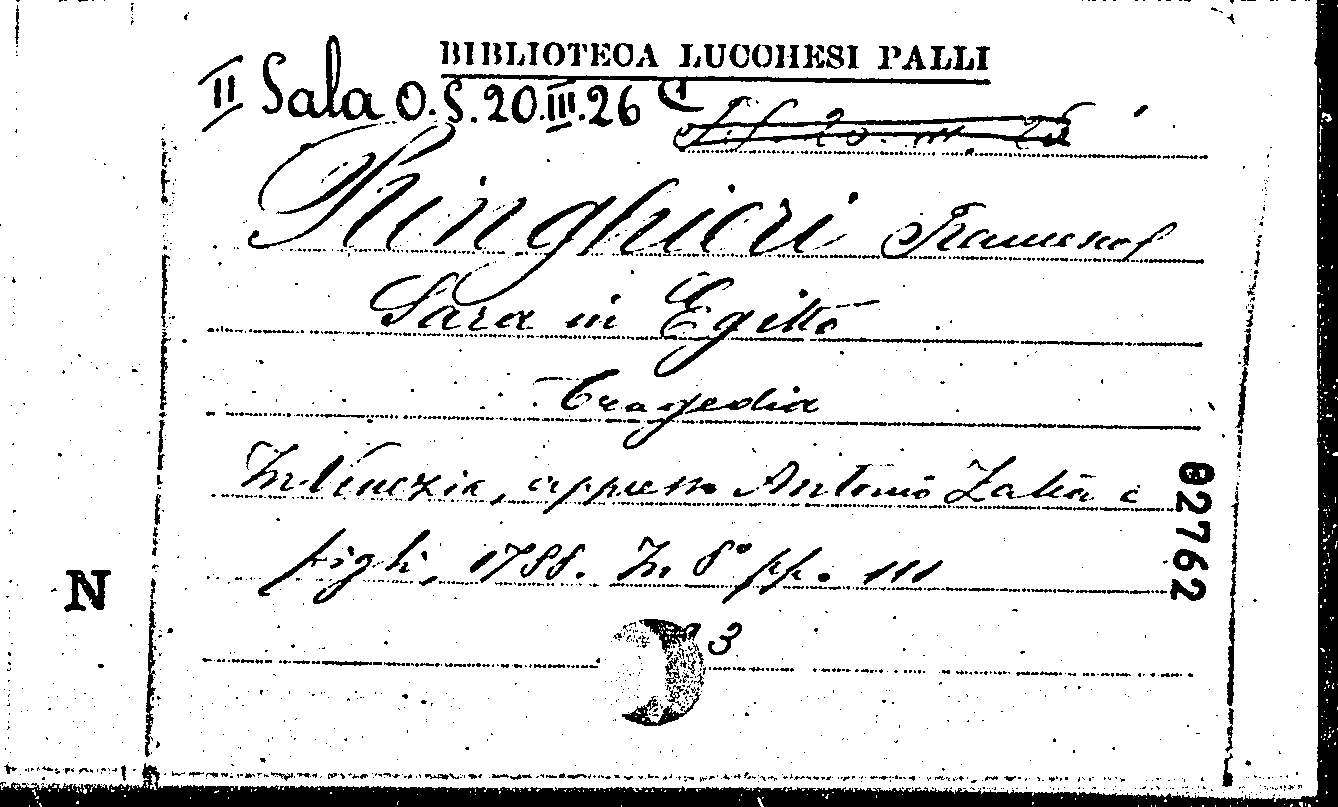 BIBLIOTECA LUCCHESI PALLI
II Sala O.S. 20.III.26 C
Ringhieri Francesco
Sara in Egitto
Tragedia
In Venezia, appresso Antonio Zatta e
figli, 1788. In 8° pp. 111
3
82762
N